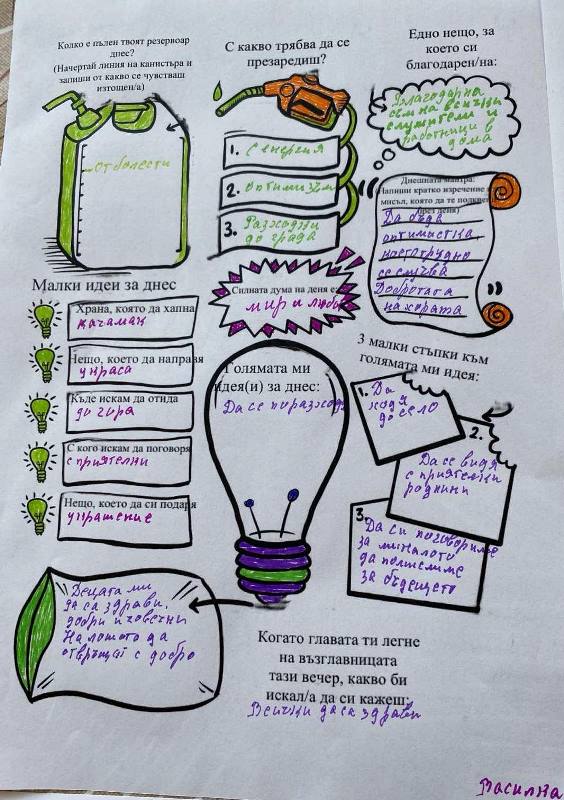 Колко е пълен твоят резервоар
днес?
(Начертай линия на канистъра и
запиши от какво се чувстваш
изтощен/а)
от болести
С какво трябва да се
презаредиш?
1. С енергия
2. оптимизъм
3. Разходки
до града
Едно нещо, за
което си
благодарен/на:
Благодарна
съм на всички
служители и
работници в
дома
Днешната мантра:
Напиши кратко изречение
мисъл, която да те подкрепи
през деня)
Да бъда
оптимистна
се случва
Добротата
на хората
Силната дума на деня е:
мир и любов
Малки идеи за днес
Храна, която да хапна
качамак
Нещо, което да направя
украса
Къде искам да отида
до гора
С кого искам да поговоря
с приятелки
Нещо, което да си подаря
украшение
Голямата ми
идея(и) за днес:
Да се поразходя
3 малки стъпки към
голямата ми идея:
1. Да
ходя
до село
2.
Да се видя
с приятелки
роднини
3.
Да си поговориме
за миналото
да помислиме
за бъдещето
Децата ми
да са здрави,
добри и човечни
На лошото да
отвръщат с добро
Когато главата ти легне
на възглавницата
тази вечер, какво би
искал/а да си кажеш:
Всички да са здрави
Василка